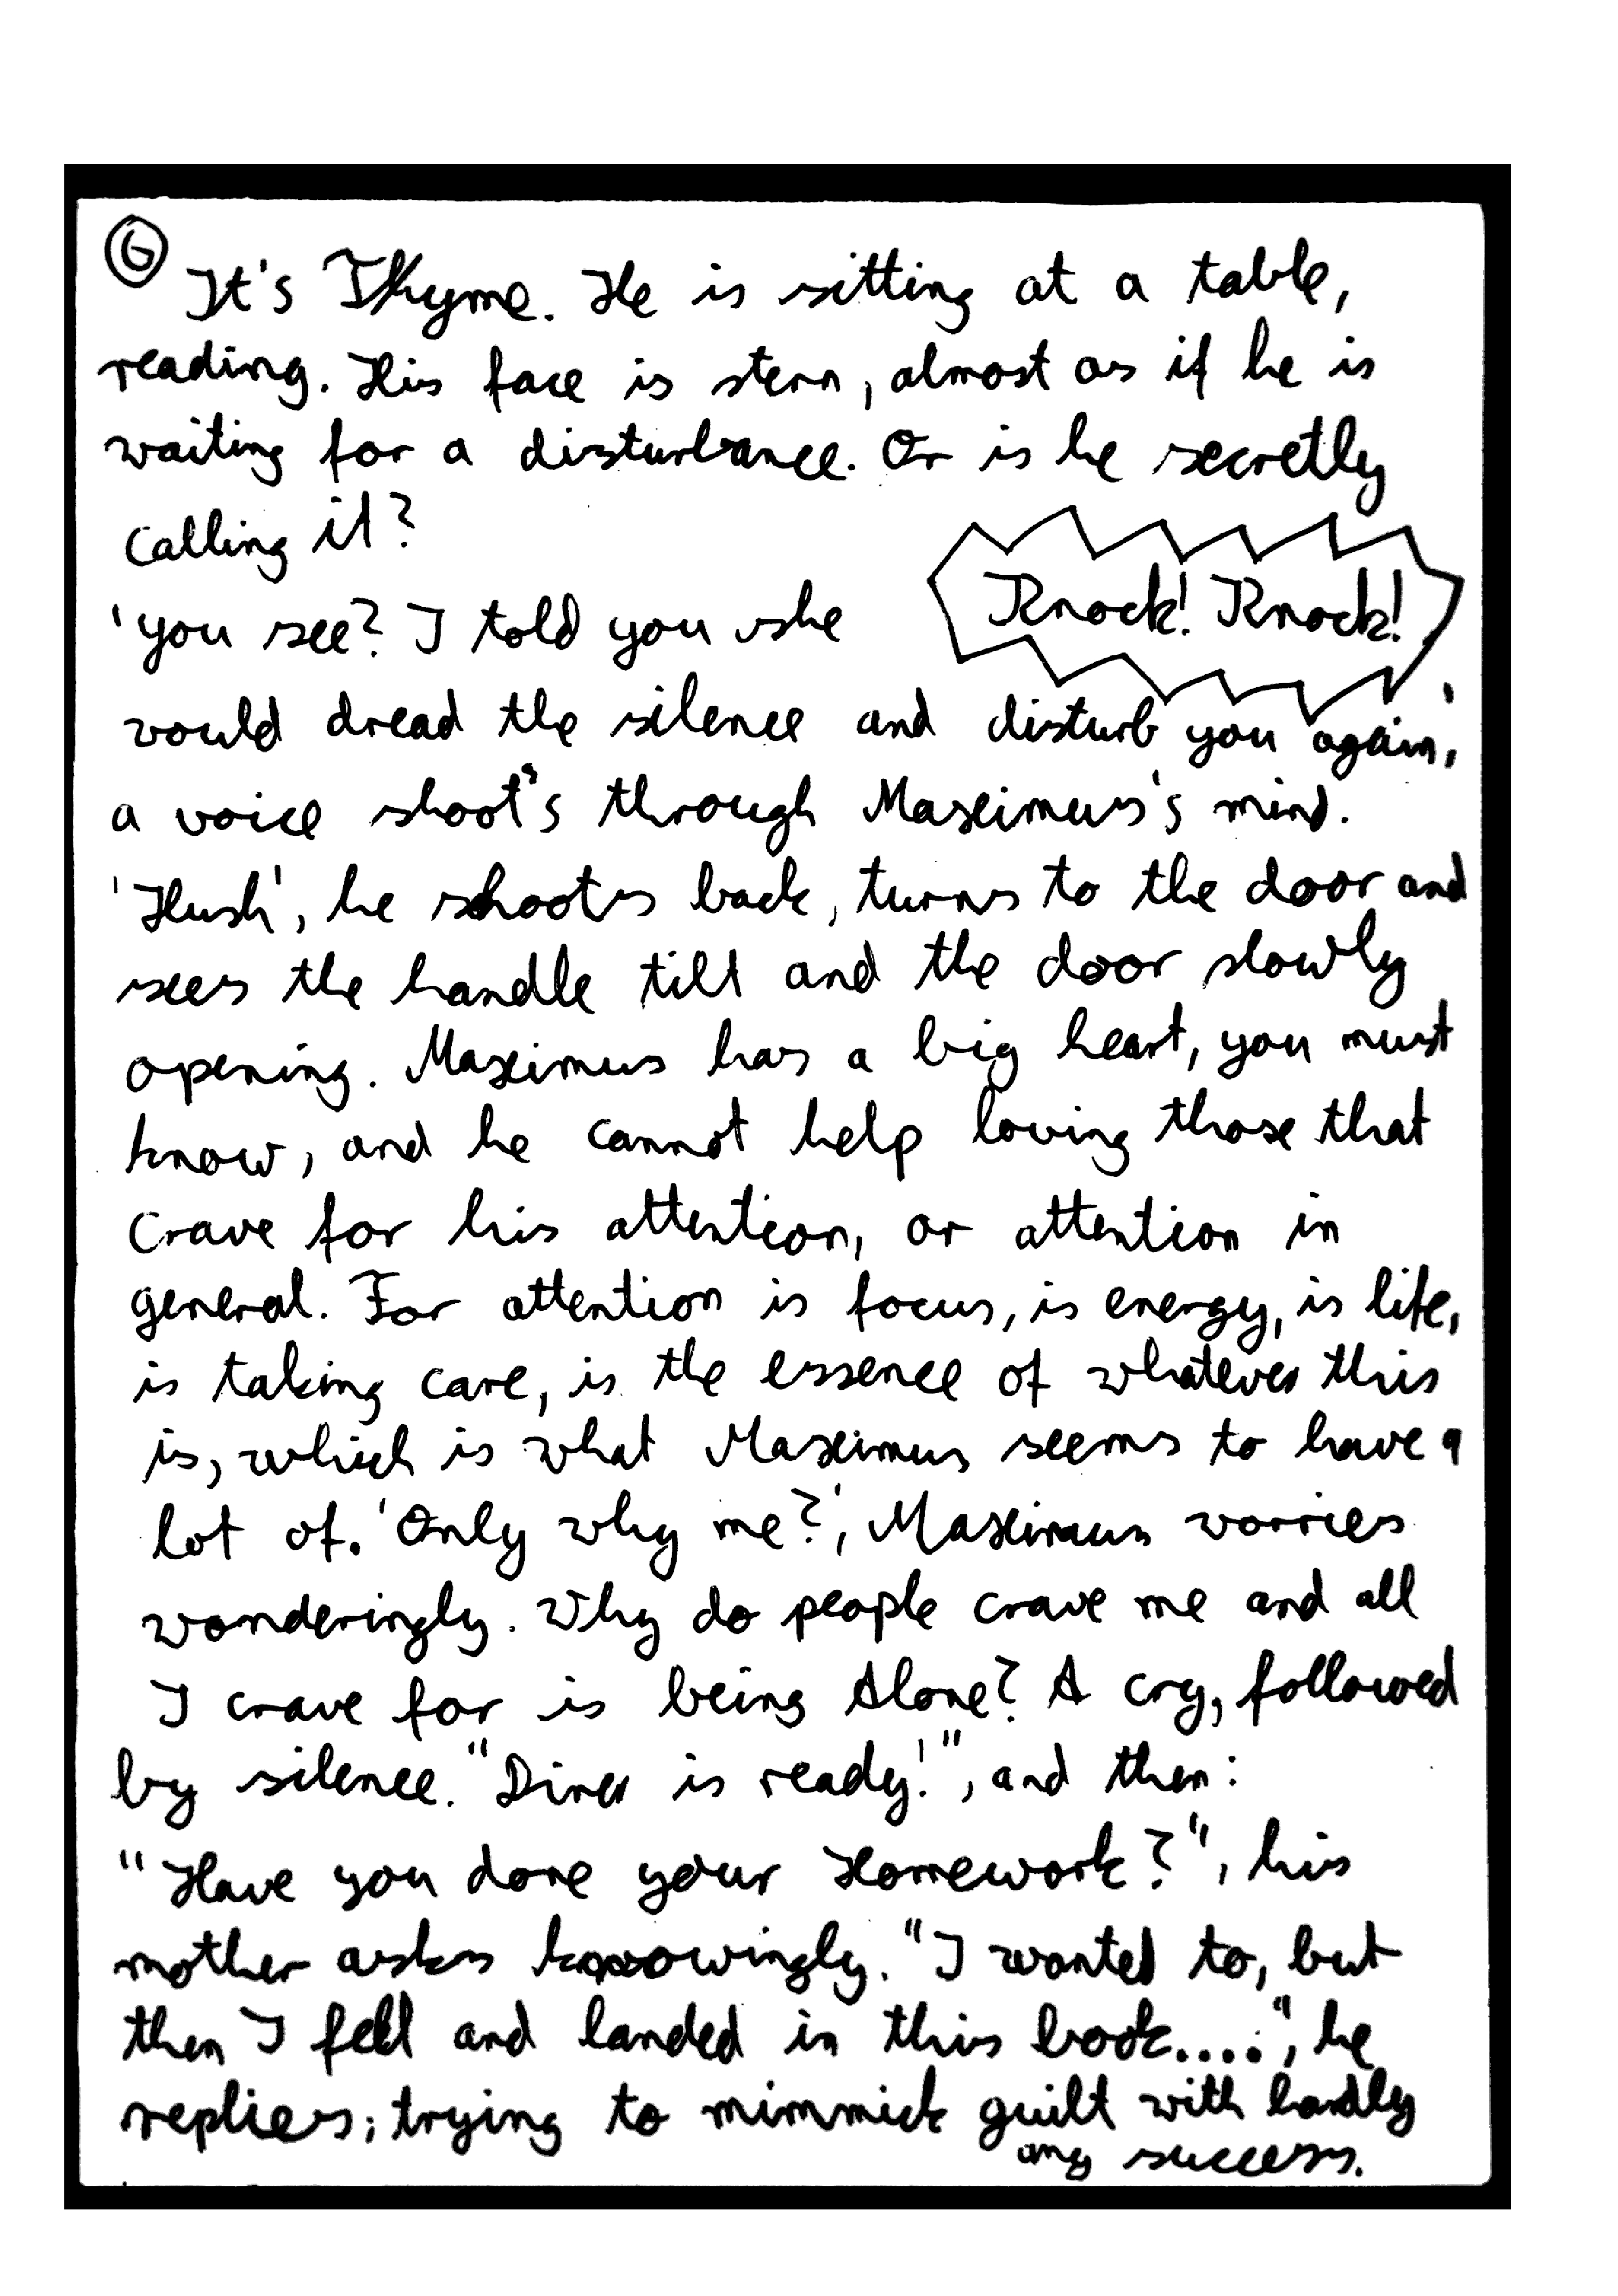 6
It's Thyme. He is sitting at a table,
reading. His face is stern, almost as if he is
waiting for a disturbance. Or is he secretly
calling it?
Knock! Knock!
'you see? I told you she
would dread the silence and disturb you again,'
a voice shoot's through Maximus's mind.
'Hush', he shoots back, turns to the door and
sees the handle tilt and the door slowly
opening. Maximus has a big heart, you must
know, and he cannot help loving those that
crave for his attention, or attention in
general. For attention is focus, is energy, is life,
is taking care, is the essence of whatever this
is, which is what Maximus seems to have a
lot of. 'Only why me?', Maximus worries
wonderingly. Why do people crave me and all
I crave for is being Alone? A cry, followed
by silence. "Diner is ready!", and then:
"Have you done your Homework?", his
mother asks knowingly. "I wanted to, but
then I fell and landed in this book....", he
replies; trying to mimmick guilt with hardly
any success.